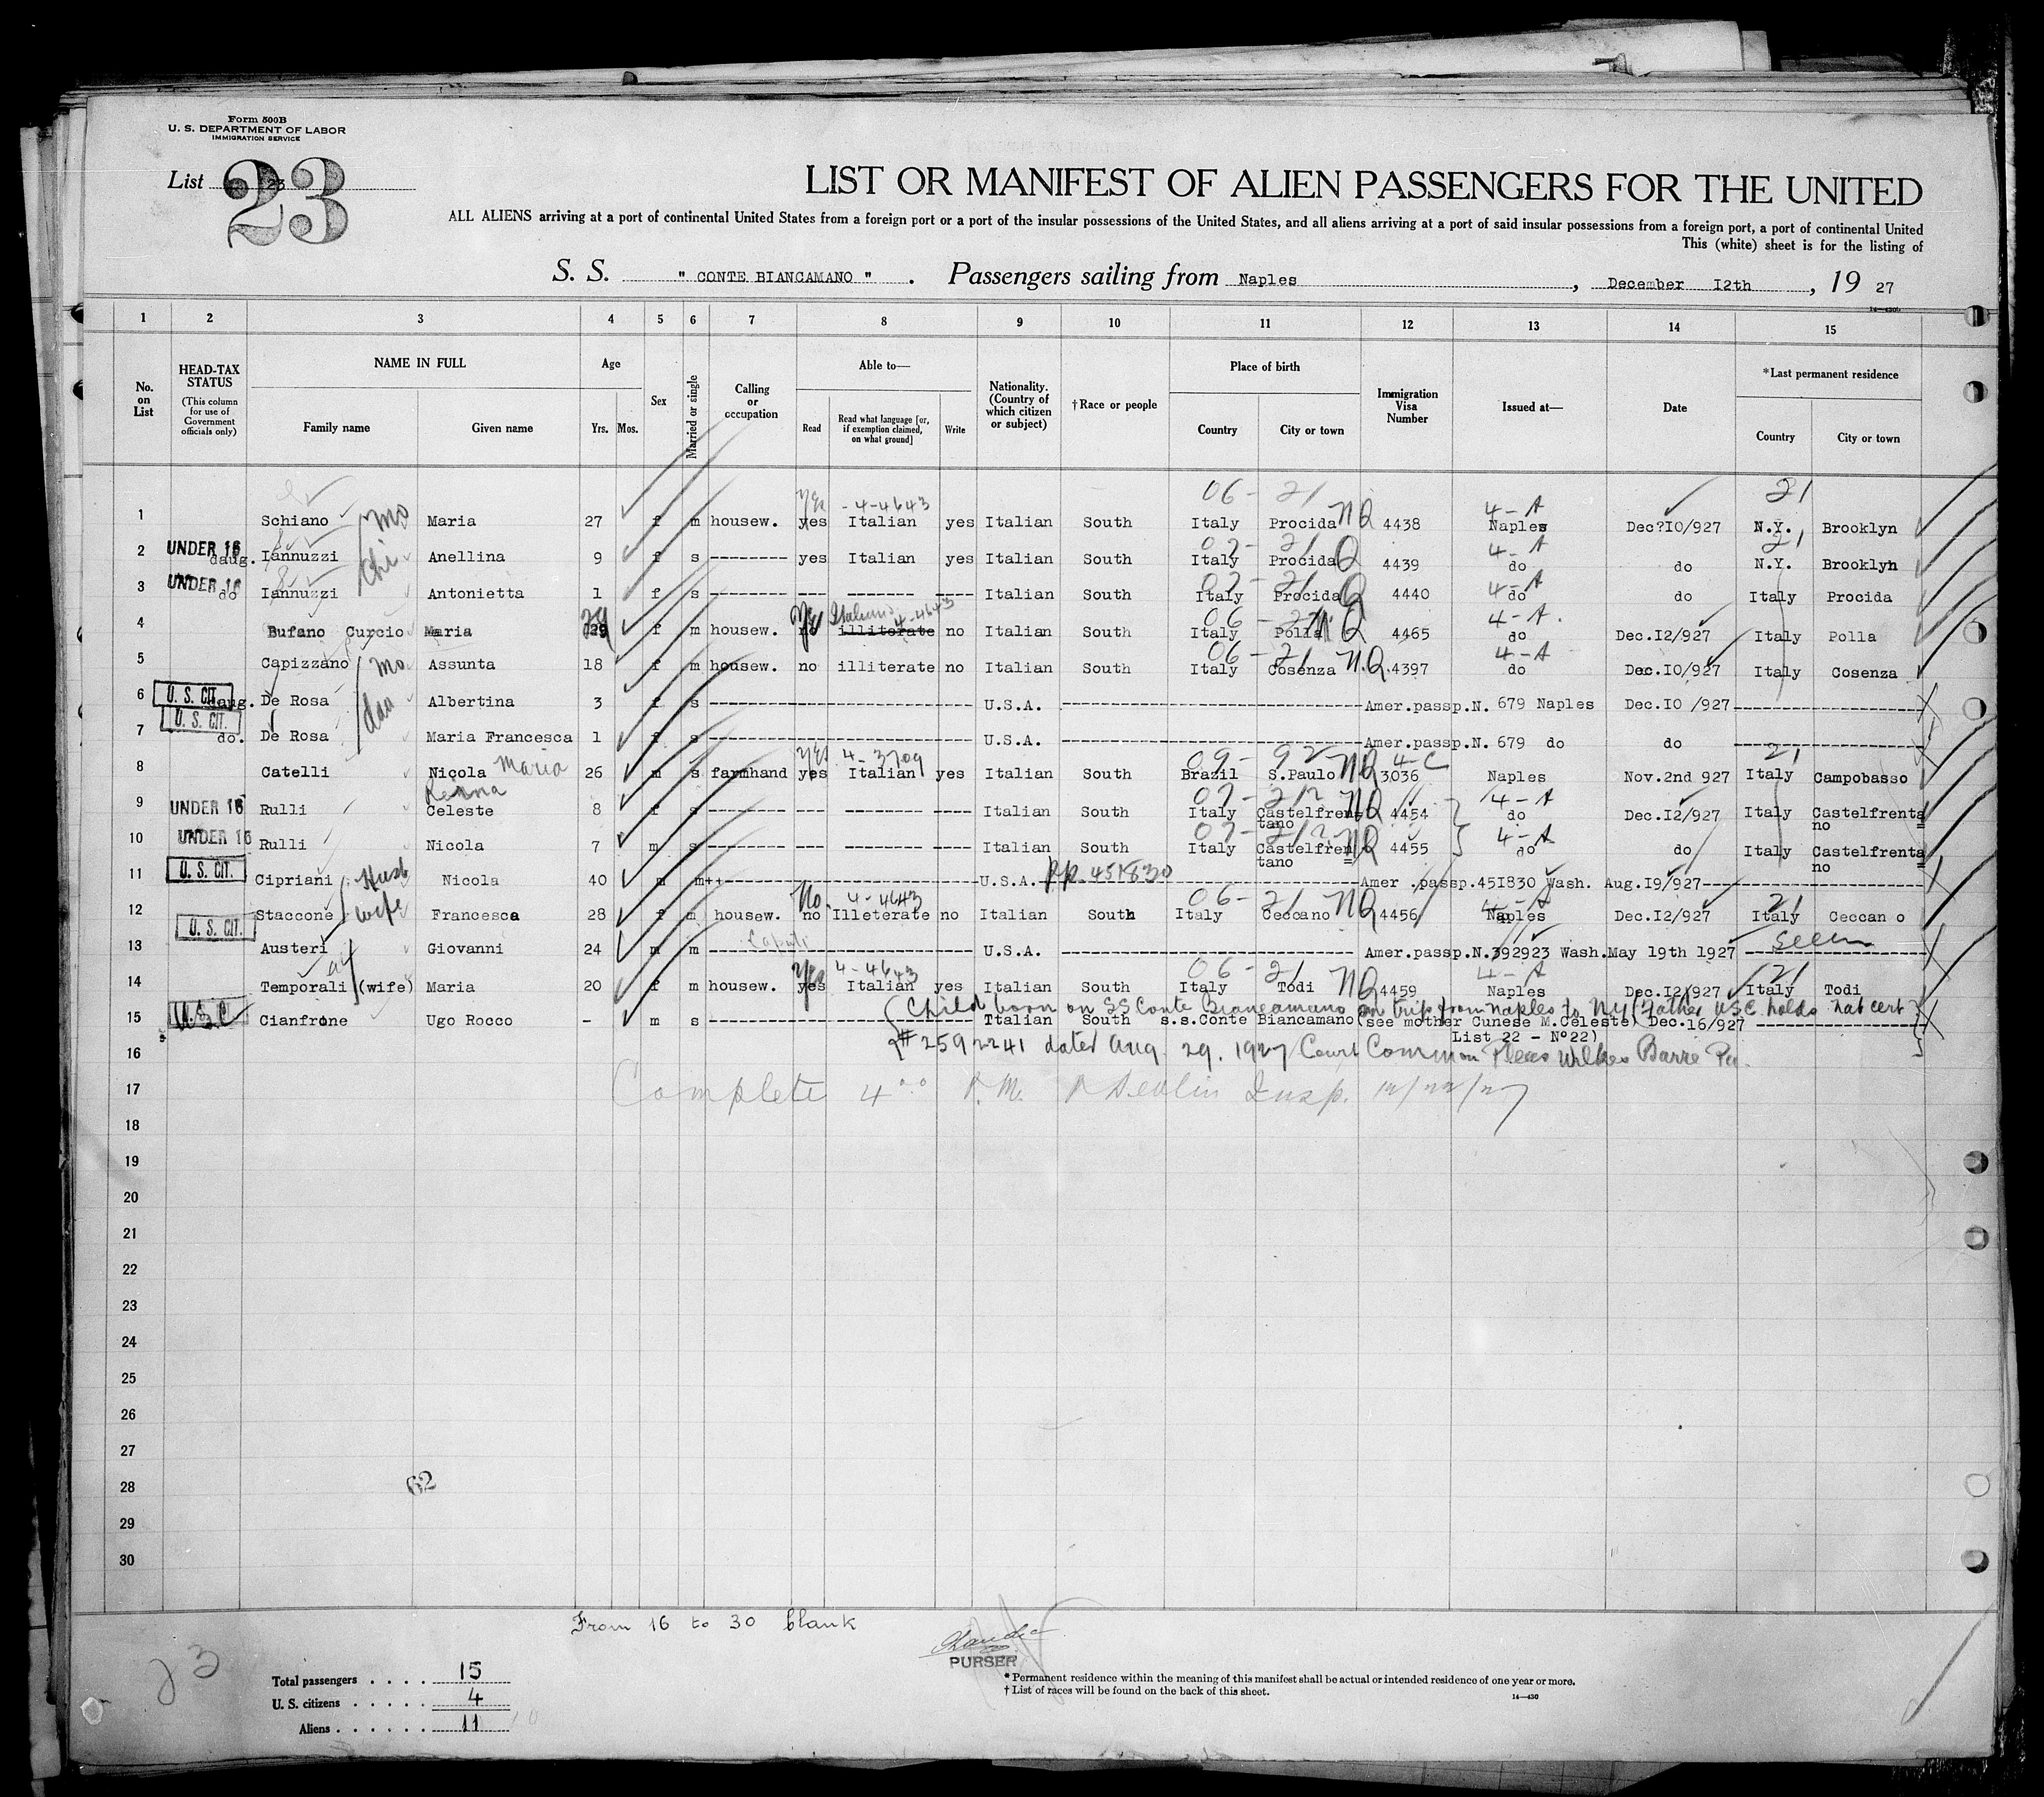 Form 500B
U. S. DEPARTMENT OF LABOR
IMMIGRATION SERVICE
List 23
23
LIST OR MANIFEST OF ALIEN PASSENGERS FOR THE UNITED
ALL ALIENS arriving at a port of continental United States from a foreign port or a port of the insular possessions of the United States, and all aliens arriving at a port of said insular possessions from a foreign port, a port of continental United
This (white) sheet is for the listing of
S. S. " CONTE BIANCAMANO " . Passengers sailing from Naples , December I2th , 19 27
14—430
1 2 3 4 5 6 7 8 9 10 11 12 13 14 15
No. on List
HEAD-TAX STATUS (This column for use of Government officials only)
NAME IN FULL Family name Given name
Age Yrs. Mos.
Sex
Married or single
Calling or occupation
Able to— Read Read what language [or, if exemption claimed, on what ground] Write
Nationality. (Country of which citizen or subject)
†Race or people
Place of birth Country City or town
Immigration Visa Number
Issued at—
Date
*Last permanent residence Country City or town
yes -4-4643 06- 21 4-A 21
1 Schiano mo Maria 27 f m housew. yes Italian yes Italian South Italy Procida NQ 4438 Naples Dec?IO/927 N.Y. Brooklyn
07- 21 4-A 21
2 UNDER 16 daug. Iannuzzi chi Anellina 9 f s -------- yes Italian yes Italian South Italy Procida Q 4439 do do N.Y. Brooklyn
07- 21 4-A
3 UNDER 16 do Iannuzzi Antonietta 1 f s -------- -- ------- ---- Italian South Italy Procida Q 4440 do do Italy Procida
29 yes Italian 4-4643 06- 21 4-A.
4 Bufano Curcio Maria 29 f m housew. no illiterate no Italian South Italy Polla NQ 4465 do Dec.I2/927 Italy Polla
06- 21 4-A
5 Capizzano mo Assunta 18 f m housew. no illiterate no Italian South Italy Cosenza N.Q. 4397 do Dec.IO/927 Italy Cosenza
6 U. S. CIT. daug. De Rosa dau Albertina 3 f s -------- U.S.A. -------- Amer.passp.N. 679 Naples Dec.IO /927 --------
7 U. S. CIT. do. De Rosa Maria Francesca 1 f s -------- U.S.A. -------- Amer.passp.N. 679 do do --------
Maria yes 4-3709 09- 92 4-C 21
8 Catelli Nicola 26 m s farmhand yes Italian yes Italian South Brazil S.Paulo NQ 3036 Naples Nov.2nd 927 Italy Campobasso
07- 212 4-A
9 UNDER 16 Rulli Celeste 8 f s -------- -- ------- ---- Italian South Italy Castelfren tano NQ 4454 do Dec.I2/927 Italy Castelfrenta= no
07- 212 4-A
10 UNDER 16 Rulli Nicola 7 m s -------- -- ------- ---- Italian South Italy Castelfren= tano NQ 4455 do do Italy Castelfrenta= no
11 U. S. CIT. Cipriani Husb Nicola 40 m m++-------- U.S.A. pp. 451830 Amer .passp.45I830 Wash. Aug.I9/927--------
No. 4-4643 06- 21 4-A 21
12 Staccone wife Francesca 28 f m housew. no Illeterate no Italian South Italy Ceccano NQ 4456 Naples Dec.I2/927 Italy Ceccan o
13 U. S. CIT. Austeri Giovanni 24 m m -------- U.S.A. -------- Amer.passp.N.392923 Wash.May 19th 1927 seen
Yes 4-4643 06- 21 4-A 21
14 Temporali (wife) Maria 20 f m housew. yes Italian yes Italian South Italy Todi NQ 4459 Naples Dec.I2/927 Italy Todi
Child born on SS Conte Biancamano on trip from Naples to N.Y. (Father USC. holds nat cert
15 U.S.C Cianfrone Ugo Rocco - m s -------- Italian South s.s.Conte Biancamano (see mother Cunese M.Celeste) Dec.16/927 --------
List 22 - N°22)
# 2592241 dated Aug. 29. 1927 Court Common Pleas Wilkes Barre Pa.
16
17 Complete 4°° P.M. Devlin Insp. 12/22/27
18
19
20
21
22
23
24
25
26
27
28 62
29
30
From 16 to 30 blank
PURSER
23
Total passengers . . . . 15
U. S. citizens . . . . . 4
Aliens . . . . . . 11 10
* Permanent residence within the meaning of this manifest shall be actual or intended residence of one year or more.
† List of races will be found on the back of this sheet.
14—430